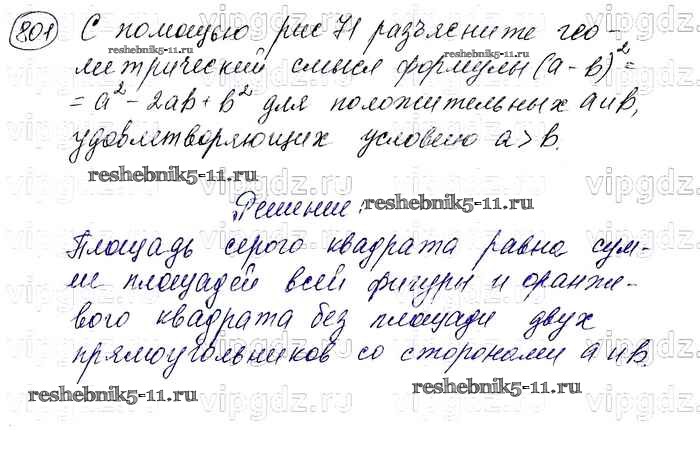 801 С помощью рис 71 разъясните гео-
reshebnik5-11.ru reshebnik5-11.ru
метрический смысл формулы (a - b)² =
= a² - 2ab + b² для положительных a и b,
удовлетворяющих условию a > b.
reshebnik5-11.ru
Решение:
reshebnik5-11.ru
Площадь серого квадрата равна сум-
ме площадей всей фигуры и оранже-
вого квадрата без площади двух
прямоугольников со сторонами a и b.
reshebnik5-11.ru reshebnik5-11.ru
vipgdz.ru